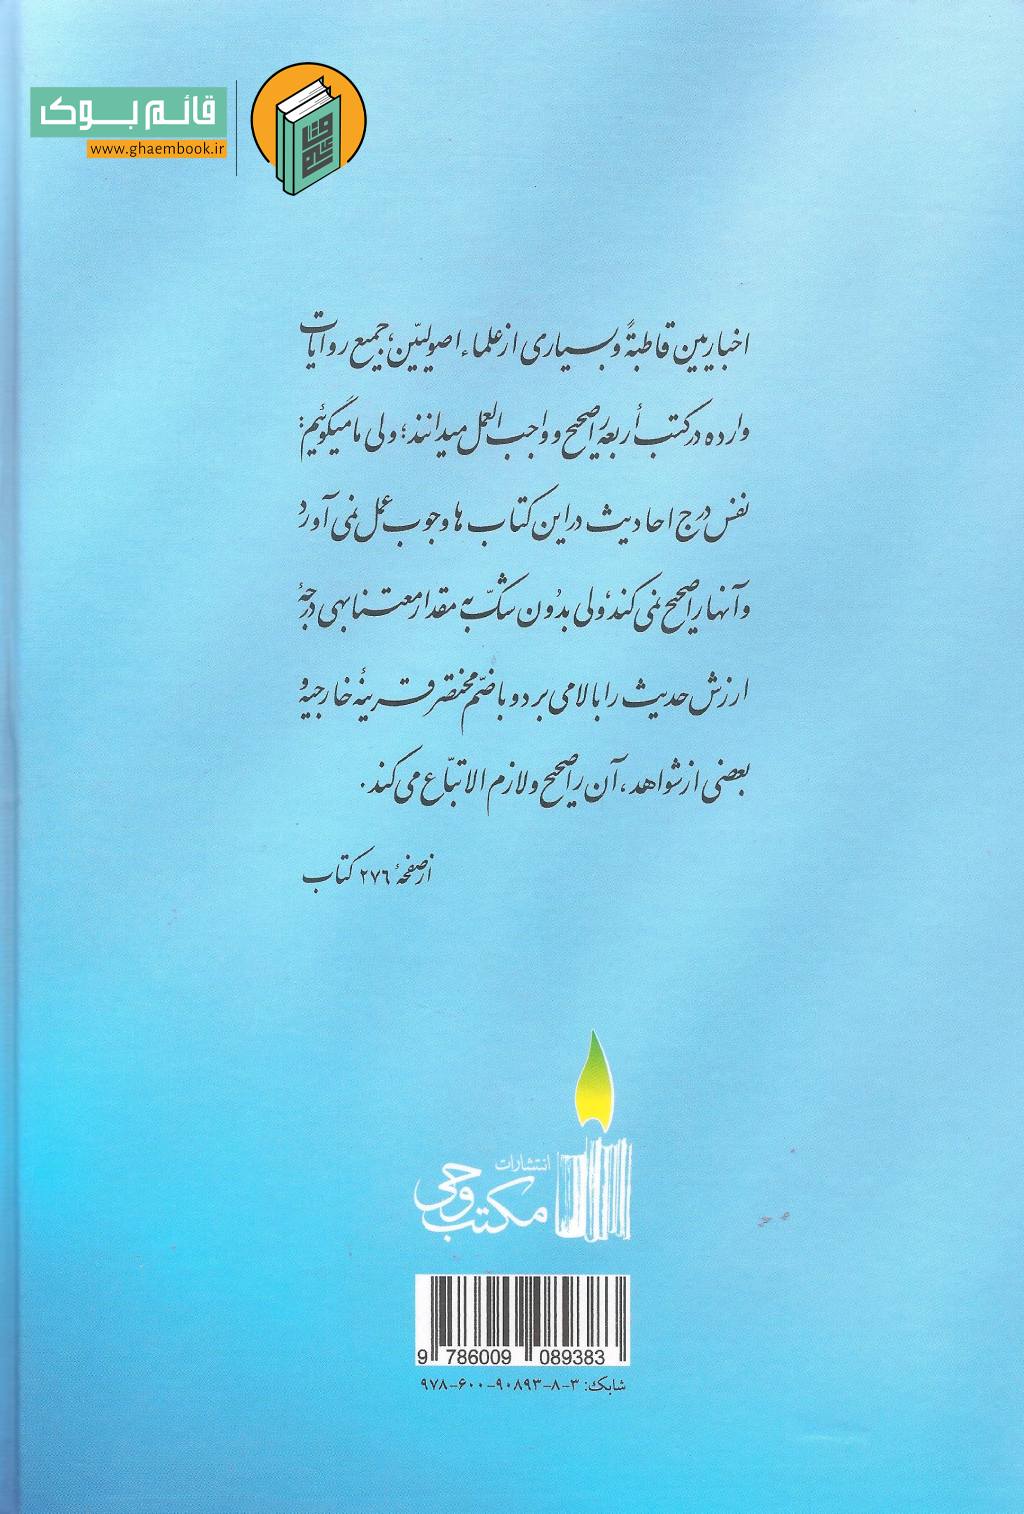 قائم بوک
www.ghaembook.ir
اخباریین قاطبةً و بسیاری از علماء اصولیّین، جمیع روایات
وارده در کتب أربعه را صحیح و واجب العمل میدانند؛ ولی ما میگوئیم:
نفس درج احادیث در این کتاب ها وجوب عمل نمی آورد
و آنها را صحیح نمی کند، ولی بدون شکّ به مقدار معتنابهی درجۀ
ارزش حدیث را بالا می برد و با ضمّ مختصر قرینۀ خارجیه و
بعضی از شواهد، آن را صحیح و لازم الاتبّاع می کند.
از صفحۀ ۲۷٦ کتاب
انتشارات
مکتب وحی
9 786009 089383
شابک: ۳-۸-۹۰۸۹۳-۶۰۰-۹۷۸